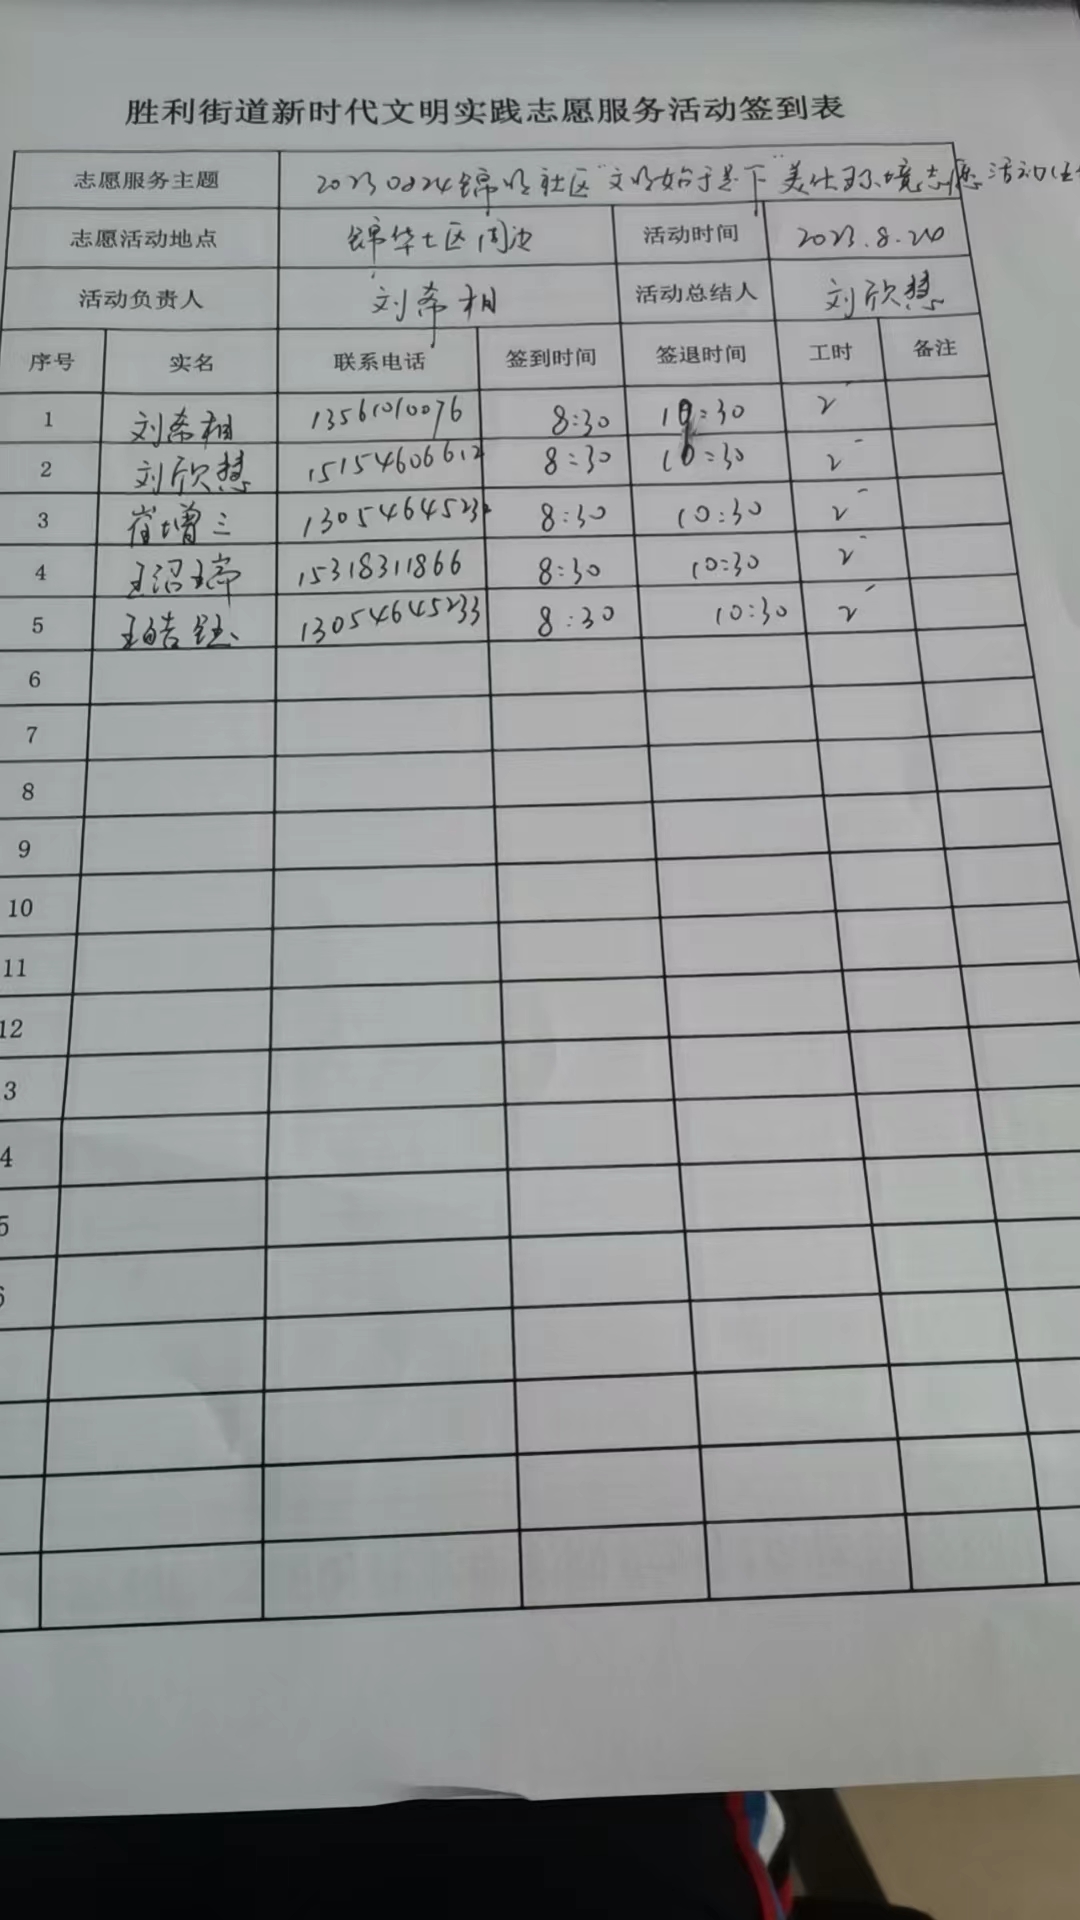 胜利街道新时代文明实践志愿服务活动签到表
志愿服务主题 20230824锦华社区"文明始于足下"美化环境志愿活动
志愿活动地点 锦华七区周边 活动时间 2023.8.24
活动负责人 刘希相 活动总结人 刘欣慧
序号 实名 联系电话 签到时间 签退时间 工时 备注
1 刘希相 13561010076 8:30 10:30 2
2 刘欣慧 15154606612 8:30 10:30 2
3 崔增三 1305464523 8:30 10:30 2
4 王沼 15318311866 8:30 10:30 2
5 王皓钰 13054645233 8:30 10:30 2
6
7
8
9
10
11
12
3
4
5
6